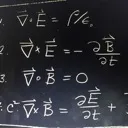 1. ∇⃗·E⃗ = ρ/ε₀
2. ∇⃗×E⃗ = - ∂B⃗/∂t
3. ∇⃗∘B⃗ = 0
4. c² ∇⃗×B⃗ = ∂E⃗/∂t +